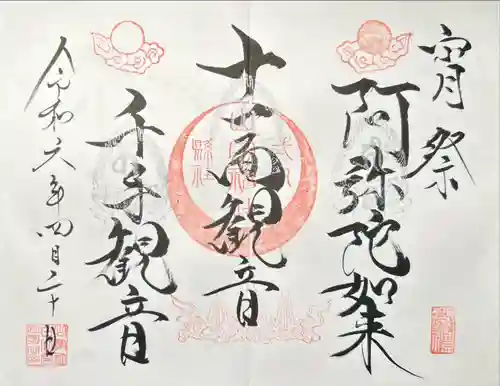 宵月祭
阿弥陀如来
十一面観音
千手観音
令和六年四月二十日